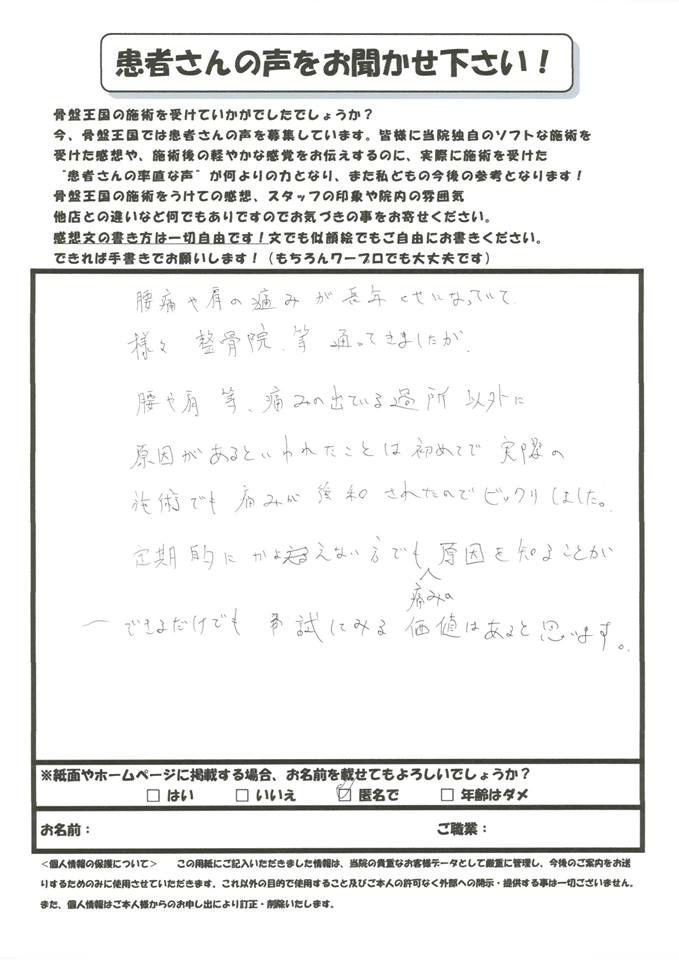 患者さんの声をお聞かせ下さい!
骨盤王国の施術を受けていかがでしたでしょうか?
今、骨盤王国では患者さんの声を募集しています。皆様に当院独自のソフトな施術を
受けた感想や、施術後の軽やかな感覚をお伝えするのに、実際に施術を受けた
"患者さんの率直な声"が何よりの力となり、また私どもの今後の参考となります!
骨盤王国の施術をうけての感想、スタッフの印象や院内の雰囲気
他店との違いなど何でもありですのでお気づきの事をお寄せください。
感想文の書き方は一切自由です!文でも似顔絵でもご自由にお書きください。
できれば手書きでお願いします!(もちろんワープロでも大丈夫です)
腰痛や肩の痛みが長年くせになっていて、
様々整骨院、等通ってきましたが、
腰や肩等、痛みの出ている過所以外に
原因があるといわれたことは初めてで実際の
施術でも痛みが緩和されたのでビックリしました。
定期的にかよえない方でも原因を知ることが
痛みの
できるだけでも試にみる価値はあると思います。
※紙面やホームページに掲載する場合、お名前を載せてもよろしいでしょうか?
□ はい □ いいえ ☑ 匿名で □ 年齢はダメ
お名前: ご職業:
<個人情報の保護について> この用紙にご記入いただきました情報は、当院の貴重なお客様データとして厳重に管理し、今後のご案内をお送
りするためのみに使用させていただきます。これ以外の目的で使用すること及びご本人の許可なく外部への開示・提供する事は一切ございません。
また、個人情報はご本人様からのお申し出により訂正・削除いたします。